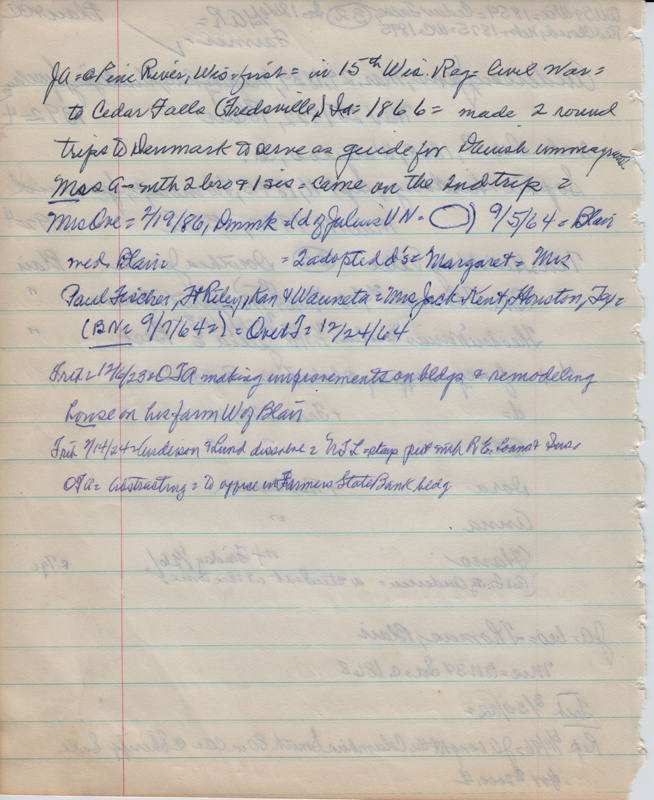 JA = @ Pine River, Wis = first = in 15th Wis. Reg = Civil War =
to Cedar Falls (Fredsville,) Ia = 1866 = made 2 round
trips to Denmark to serve as guide for Danish
Mrs A - with 2 bro & 1 sis = came on the 2nd trip =
Mrs Ove = 7/19/86, Dnmrk = (d of Julius VN - ) 9/5/64 = Blair
wed. Blair = 2 adopted d's = Margaret = Mrs
Paul Fischer, Ft Riley, Kan & Wauneta = Mrs Jack Kent, Houston, Tex =
(BN = 9/7/64 = ) = Ove T = 12/24/64
Trib = 12/6/23 = OTA making improvements on bldgs & remodeling
house on his farm W of Blair
Trib 7/14/24 = Anderson & Lund dissolve = NTL = stays put with R E, Loans & Ins =
OTA = abstracting = to office in Farmers State Bank bldg